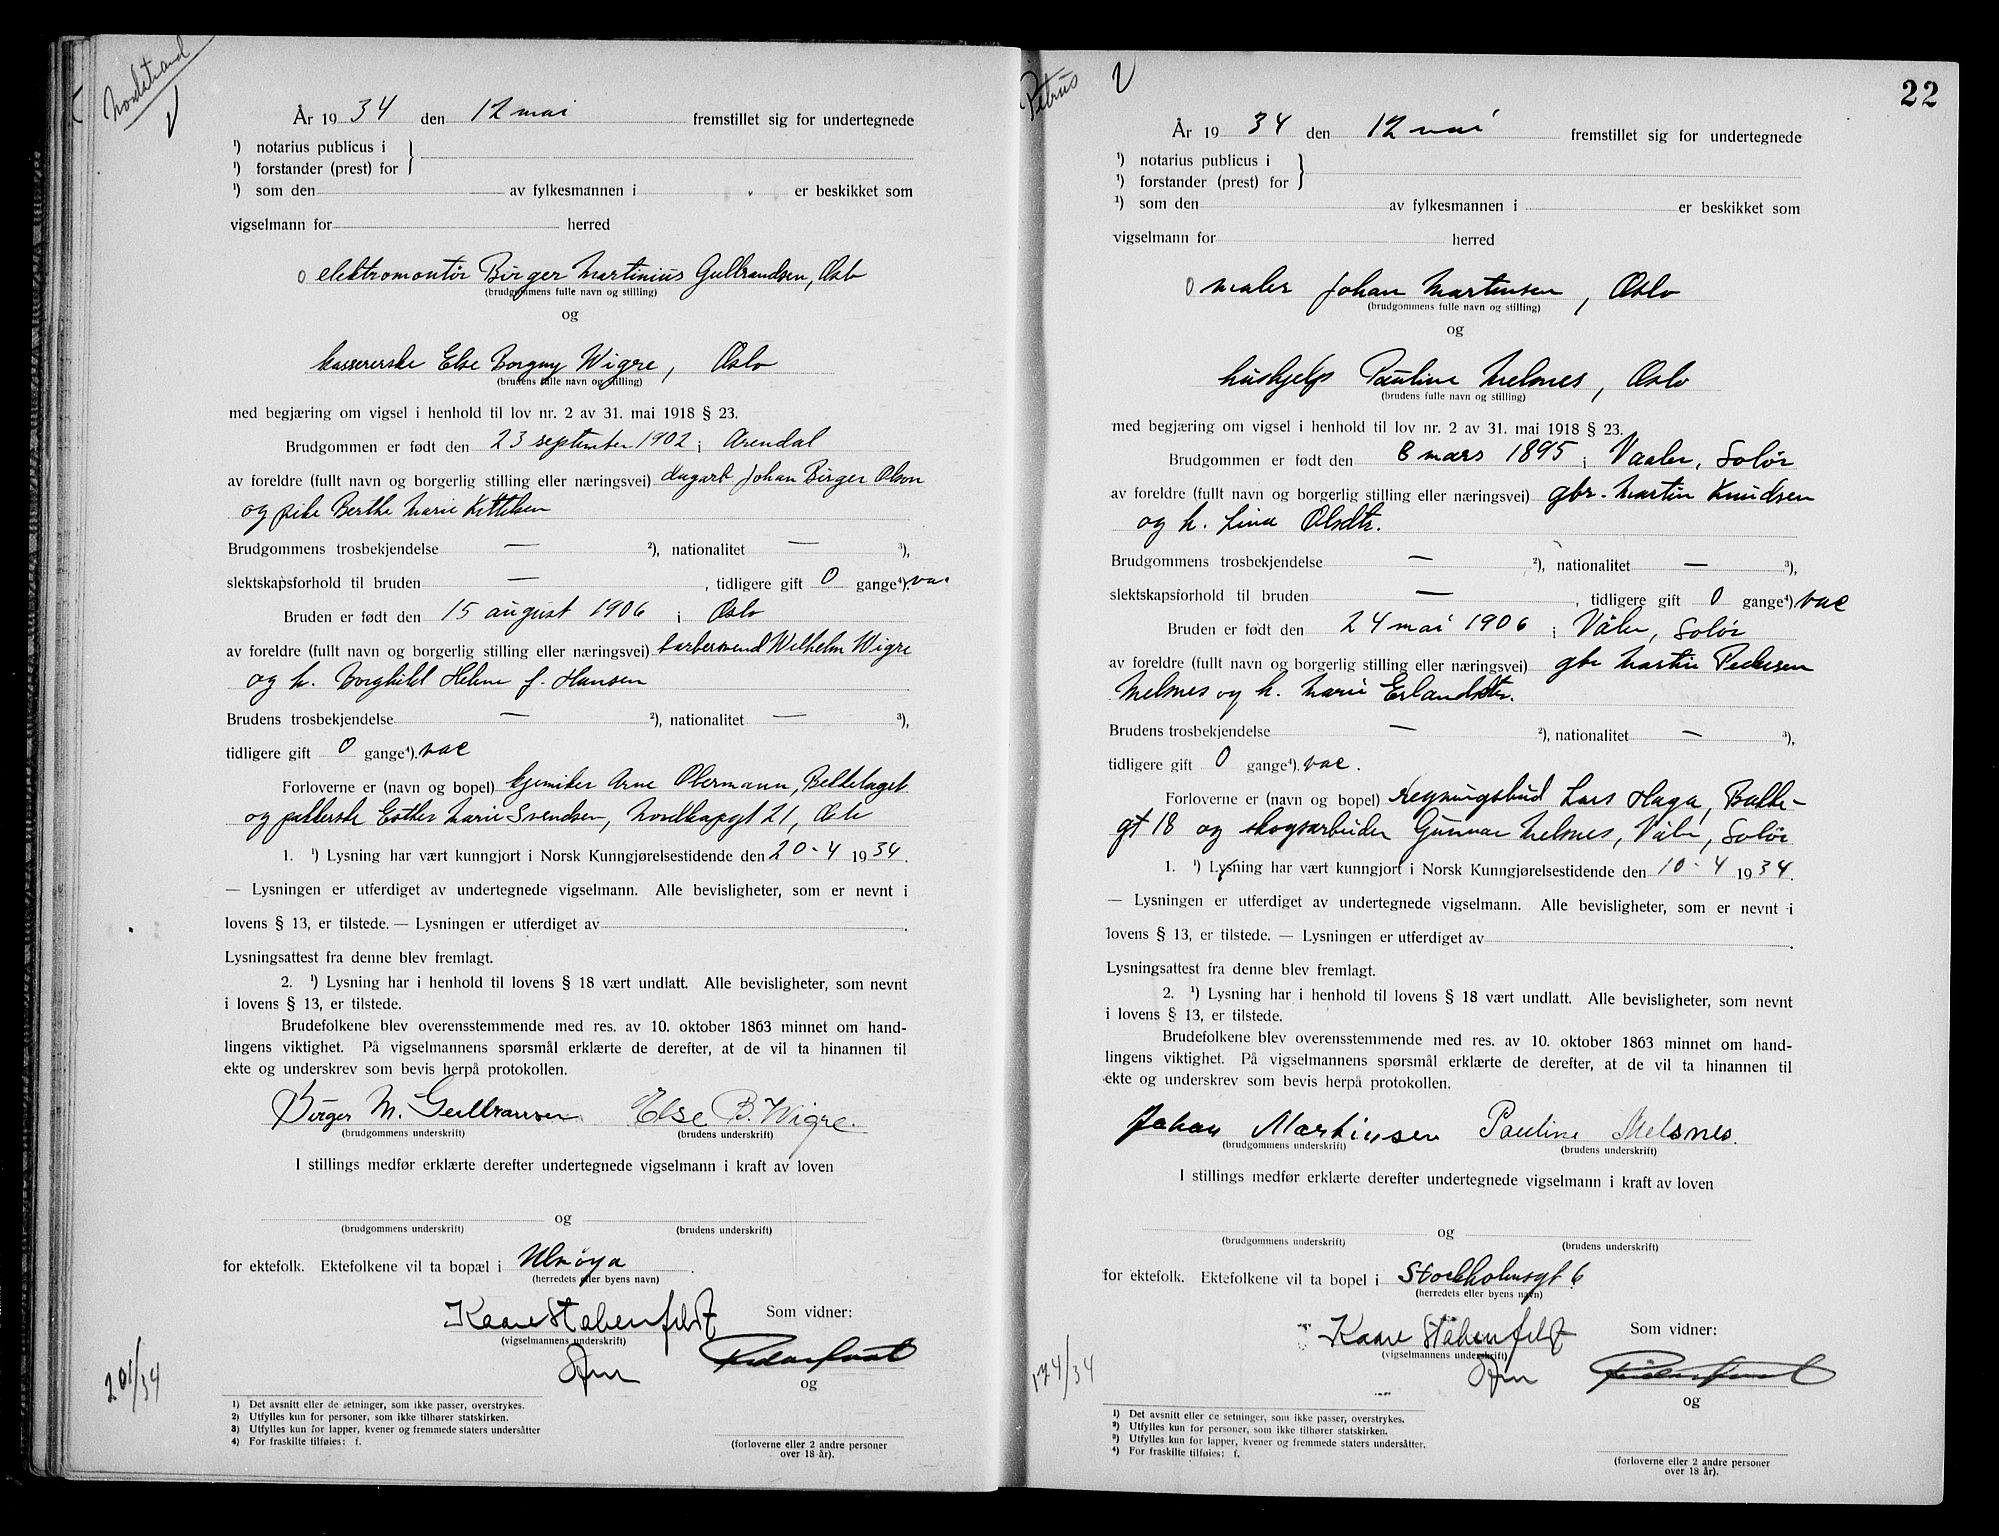 Nordstrand
År 1934 den 12 mai fremstillet sig for undertegnede
¹) notarius publicus i
¹) forstander (prest) for
¹) som den av fylkesmannen i er beskikket som
vigselmann for herred
elektromontør Birger Martinius Gulbrandsen, Oslo
(brudgommens fulle navn og stilling)
og
kassererske Else Borgny Wigre, Oslo
(brudens fulle navn og stilling)
med begjæring om vigsel i henhold til lov nr. 2 av 31. mai 1918 § 23.
Brudgommen er født den 23 september 1902 i Arendal
av foreldre (fullt navn og borgerlig stilling eller næringsvei) dagarb. Johan Birger Olson
og pike Berthe Marie Kittelsen
Brudgommens trosbekjendelse — ²), nationalitet — ³),
slektskapsforhold til bruden — , tidligere gift 0 gange⁴). vac
Bruden er født den 15 august 1906 i Oslo
av foreldre (fullt navn og borgerlig stilling eller næringsvei) barbersvend Wilhelm Wigre
og h. Borghild Helene f. Hansen
Brudens trosbekjendelse — ²), nationalitet — ³),
tidligere gift 0 gange⁴). vac
Forloverne er (navn og bopel) kjemiker Arne Obermann, Bekkelaget
og pakkerske Esther Marie Svendsen, Nordkapgt 21, Oslo
1. ¹) Lysning har vært kunngjort i Norsk Kunngjørelsestidende den 20-4 1934.
— Lysningen er utferdiget av undertegnede vigselmann. Alle bevisligheter, som er nevnt i
lovens § 13, er tilstede. — Lysningen er utferdiget av
Lysningsattest fra denne blev fremlagt.
2. ¹) Lysning har i henhold til lovens § 18 vært undlatt. Alle bevisligheter, som nevnt
i lovens § 13, er tilstede.
Brudefolkene blev overensstemmende med res. av 10. oktober 1863 minnet om hand-
lingens viktighet. På vigselmannens spørsmål erklærte de derefter, at de vil ta hinannen til
ekte og underskrev som bevis herpå protokollen.
Birger M. Gulbransen Else B. Wigre.
(brudgommens underskrift) (brudens underskrift)
I stillings medfør erklærte derefter undertegnede vigselmann i kraft av loven
og
(brudgommens underskrift) (brudens underskrift)
for ektefolk. Ektefolkene vil ta bopæl i Ulvøya
(herredets eller byens navn)
Kaare Stabenfeldt Som vidner:
(vigselmannens underskrift)
og
201/34
1) Det avsnitt eller de setninger, som ikke passer, overstrykes.
2) Utfylles kun for personer, som ikke tilhører statskirken.
3) Utfylles kun for lapper, kvener og fremmede staters undersåtter
4) For fraskilte tilføies: f.
(forloverne eller 2 andre personer
over 18 år).
22
Petrus
År 1934 den 12 mai fremstillet sig for undertegnede
¹) notarius publicus i
¹) forstander (prest) for
¹) som den av fylkesmannen i er beskikket som
vigselmann for herred
maler Johan Martinsen, Oslo
(brudgommens fulle navn og stilling)
og
hushjelp Pauline Melsnes, Oslo
(brudens fulle navn og stilling)
med begjæring om vigsel i henhold til lov nr. 2 av 31. mai 1918 § 23.
Brudgommen er født den 8 mars 1895 i Vaaler, Solør
av foreldre (fullt navn og borgerlig stilling eller næringsvei) gbr. Martin Knudsen
og h. Lina Olsdtr.
Brudgommens trosbekjendelse — ²), nationalitet — ³),
slektskapsforhold til bruden — , tidligere gift 0 gange⁴). vac
Bruden er født den 24 mai 1906 i Våler, Solør
av foreldre (fullt navn og borgerlig stilling eller næringsvei) gbr Martin Pedersen
Melsnes og h. Marie Erlandsdtr.
Brudens trosbekjendelse — ²), nationalitet — ³),
tidligere gift 0 gange⁴). vac.
Forloverne er (navn og bopel) regningsbud Lars Haga, Bakke-
gt 18 og skogsarbeider Gunnar Melsnes, Våler, Solør
1. ¹) Lysning har vært kunngjort i Norsk Kunngjørelsestidende den 10-4 1934.
— Lysningen er utferdiget av undertegnede vigselmann. Alle bevisligheter, som er nevnt i
lovens § 13, er tilstede. — Lysningen er utferdiget av
Lysningsattest fra denne blev fremlagt.
2. ¹) Lysning har i henhold til lovens § 18 vært undlatt. Alle bevisligheter, som nevnt
i lovens § 13, er tilstede.
Brudefolkene blev overensstemmende med res. av 10. oktober 1863 minnet om hand-
lingens viktighet. På vigselmannens spørsmål erklærte de derefter, at de vil ta hinannen til
ekte og underskrev som bevis herpå protokollen.
Johan Martinsen Pauline Melsnes.
(brudgommens underskrift) (brudens underskrift)
I stillings medfør erklærte derefter undertegnede vigselmann i kraft av loven
og
(brudgommens underskrift) (brudens underskrift)
for ektefolk. Ektefolkene vil ta bopel i Stockholmsgt 6
(herredets eller byens navn)
Kaare Stabenfeldt Som vidner:
(vigselmannens underskrift)
og
174/34
¹) Det avsnitt eller de setninger, som ikke passer, overstrykes.
²) Utfylles kun for personer, som ikke tilhører statskirken.
³) Utfylles kun for lapper, kvener og fremmede staters undersåtter.
⁴) For fraskilte tilføies: f.
(forloverne eller 2 andre personer
over 18 år).